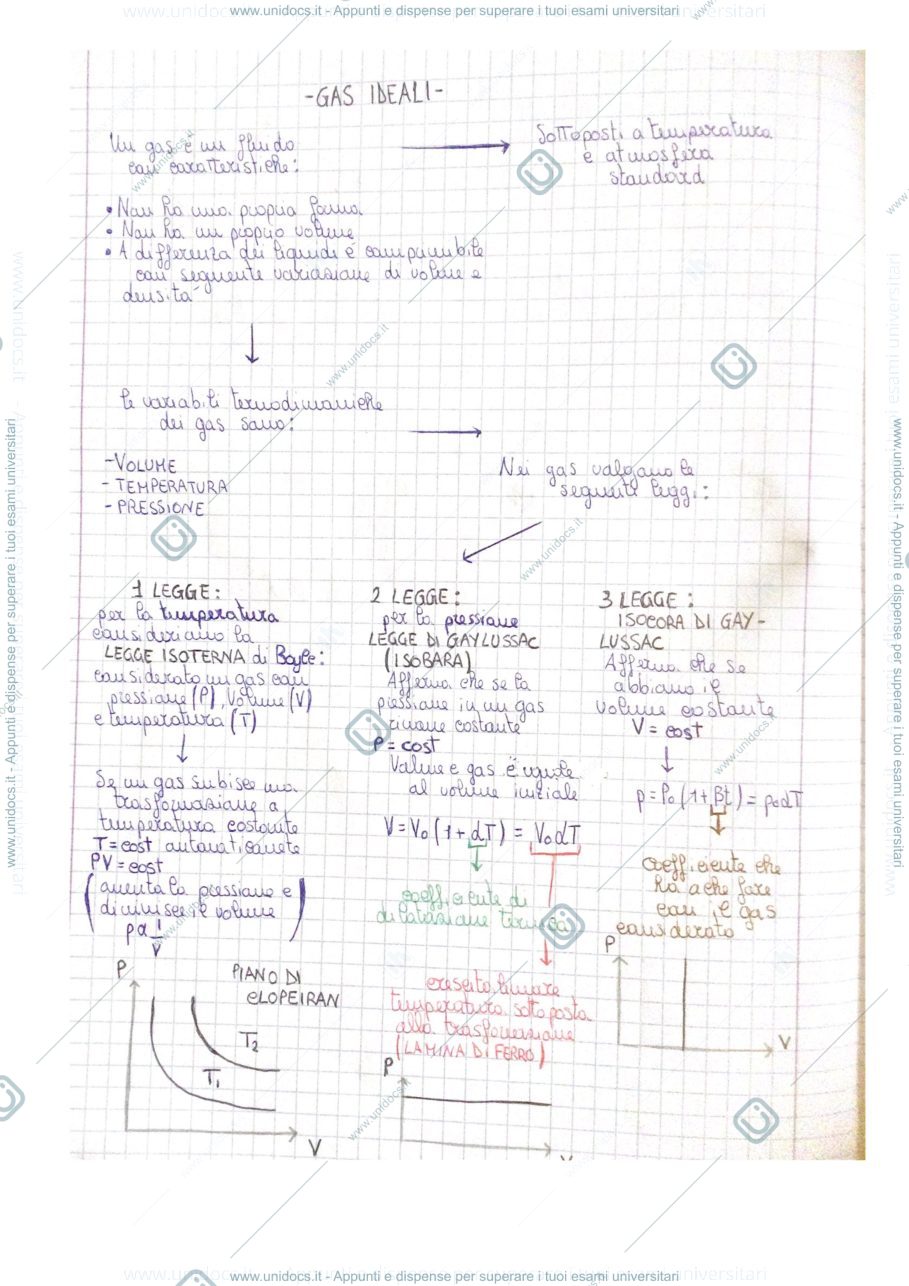 www.unidocs.it - Appunti e dispense per superare i tuoi esami universitari
-GAS IDEALI-
Un gas è un fluido
con caratteristiche:
Sottoposti a temperatura
e atmosfera
standard
• Non ha una propria forma
• Non ha un proprio volume
• A differenza dei liquidi è comprimibile
con seguente variazione di volume e
densità
le variabili termodinamiche
dei gas sono:
-VOLUME
- TEMPERATURA
- PRESSIONE
Nei gas valgono le
seguenti leggi:
1 LEGGE:
per la temperatura
consideriamo la
LEGGE ISOTERNA di Boyle:
considerato un gas con
pressione (P), Volume (V)
e temperatura (T)
Se un gas subisce una
trasformazione a
temperatura costante
T = cost automaticamente
PV = cost
(aumenta la pressione e
diminuisce il volume)
p α 1/V
P
PIANO DI
CLOPEIRAN
T2
T1
V
2 LEGGE:
per la pressione
LEGGE DI GAYLUSSAC
(ISOBARA)
Afferma che se la
pressione in un gas
rimane costante
P = cost
Volume e gas è uguale
al volume iniziale
V = V0 (1 + αT) = V0 αT
coefficiente di
dilatazione termica
crescita lineare
temperatura sottoposta
alla trasformazione
(LAMINA DI FERRO)
P
V
3 LEGGE:
ISOCORA DI GAY-
LUSSAC
Afferma che se
abbiamo il
volume costante
V = cost
p = P0 (1 + βt) = p0 αT
coefficiente che
ha a che fare
con il gas
considerato
P
V
www.unidocs.it - Appunti e dispense per superare i tuoi esami universitari